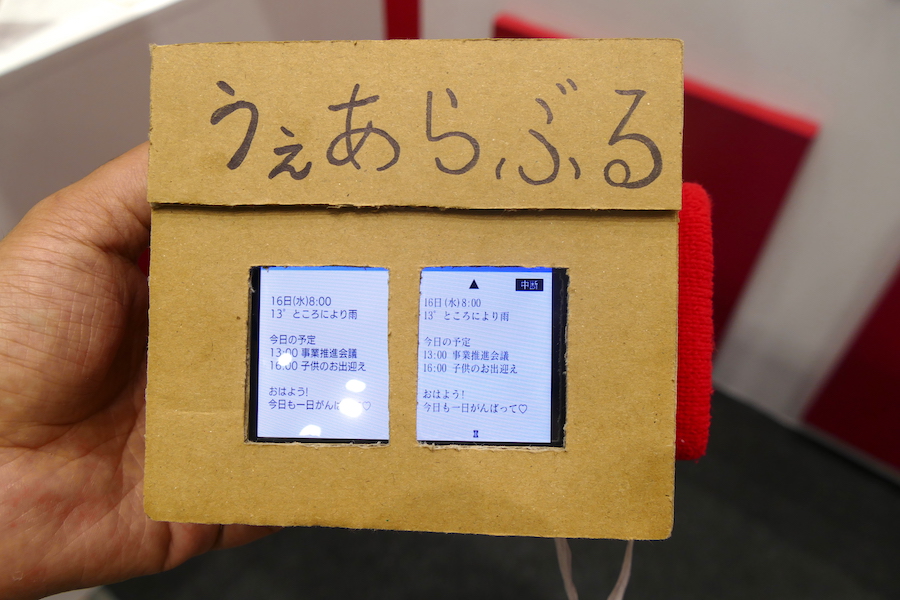 うぇあらぶる
16日(水)8:00
13° ところにより雨
今日の予定
13:00 事業推進会議
16:00 子供のお出迎え
おはよう!
今日も一日がんばって♡
▲ 中断
16日(水)8:00
13° ところにより雨
今日の予定
13:00 事業推進会議
16:00 子供のお出迎え
おはよう!
今日も一日がんばって♡